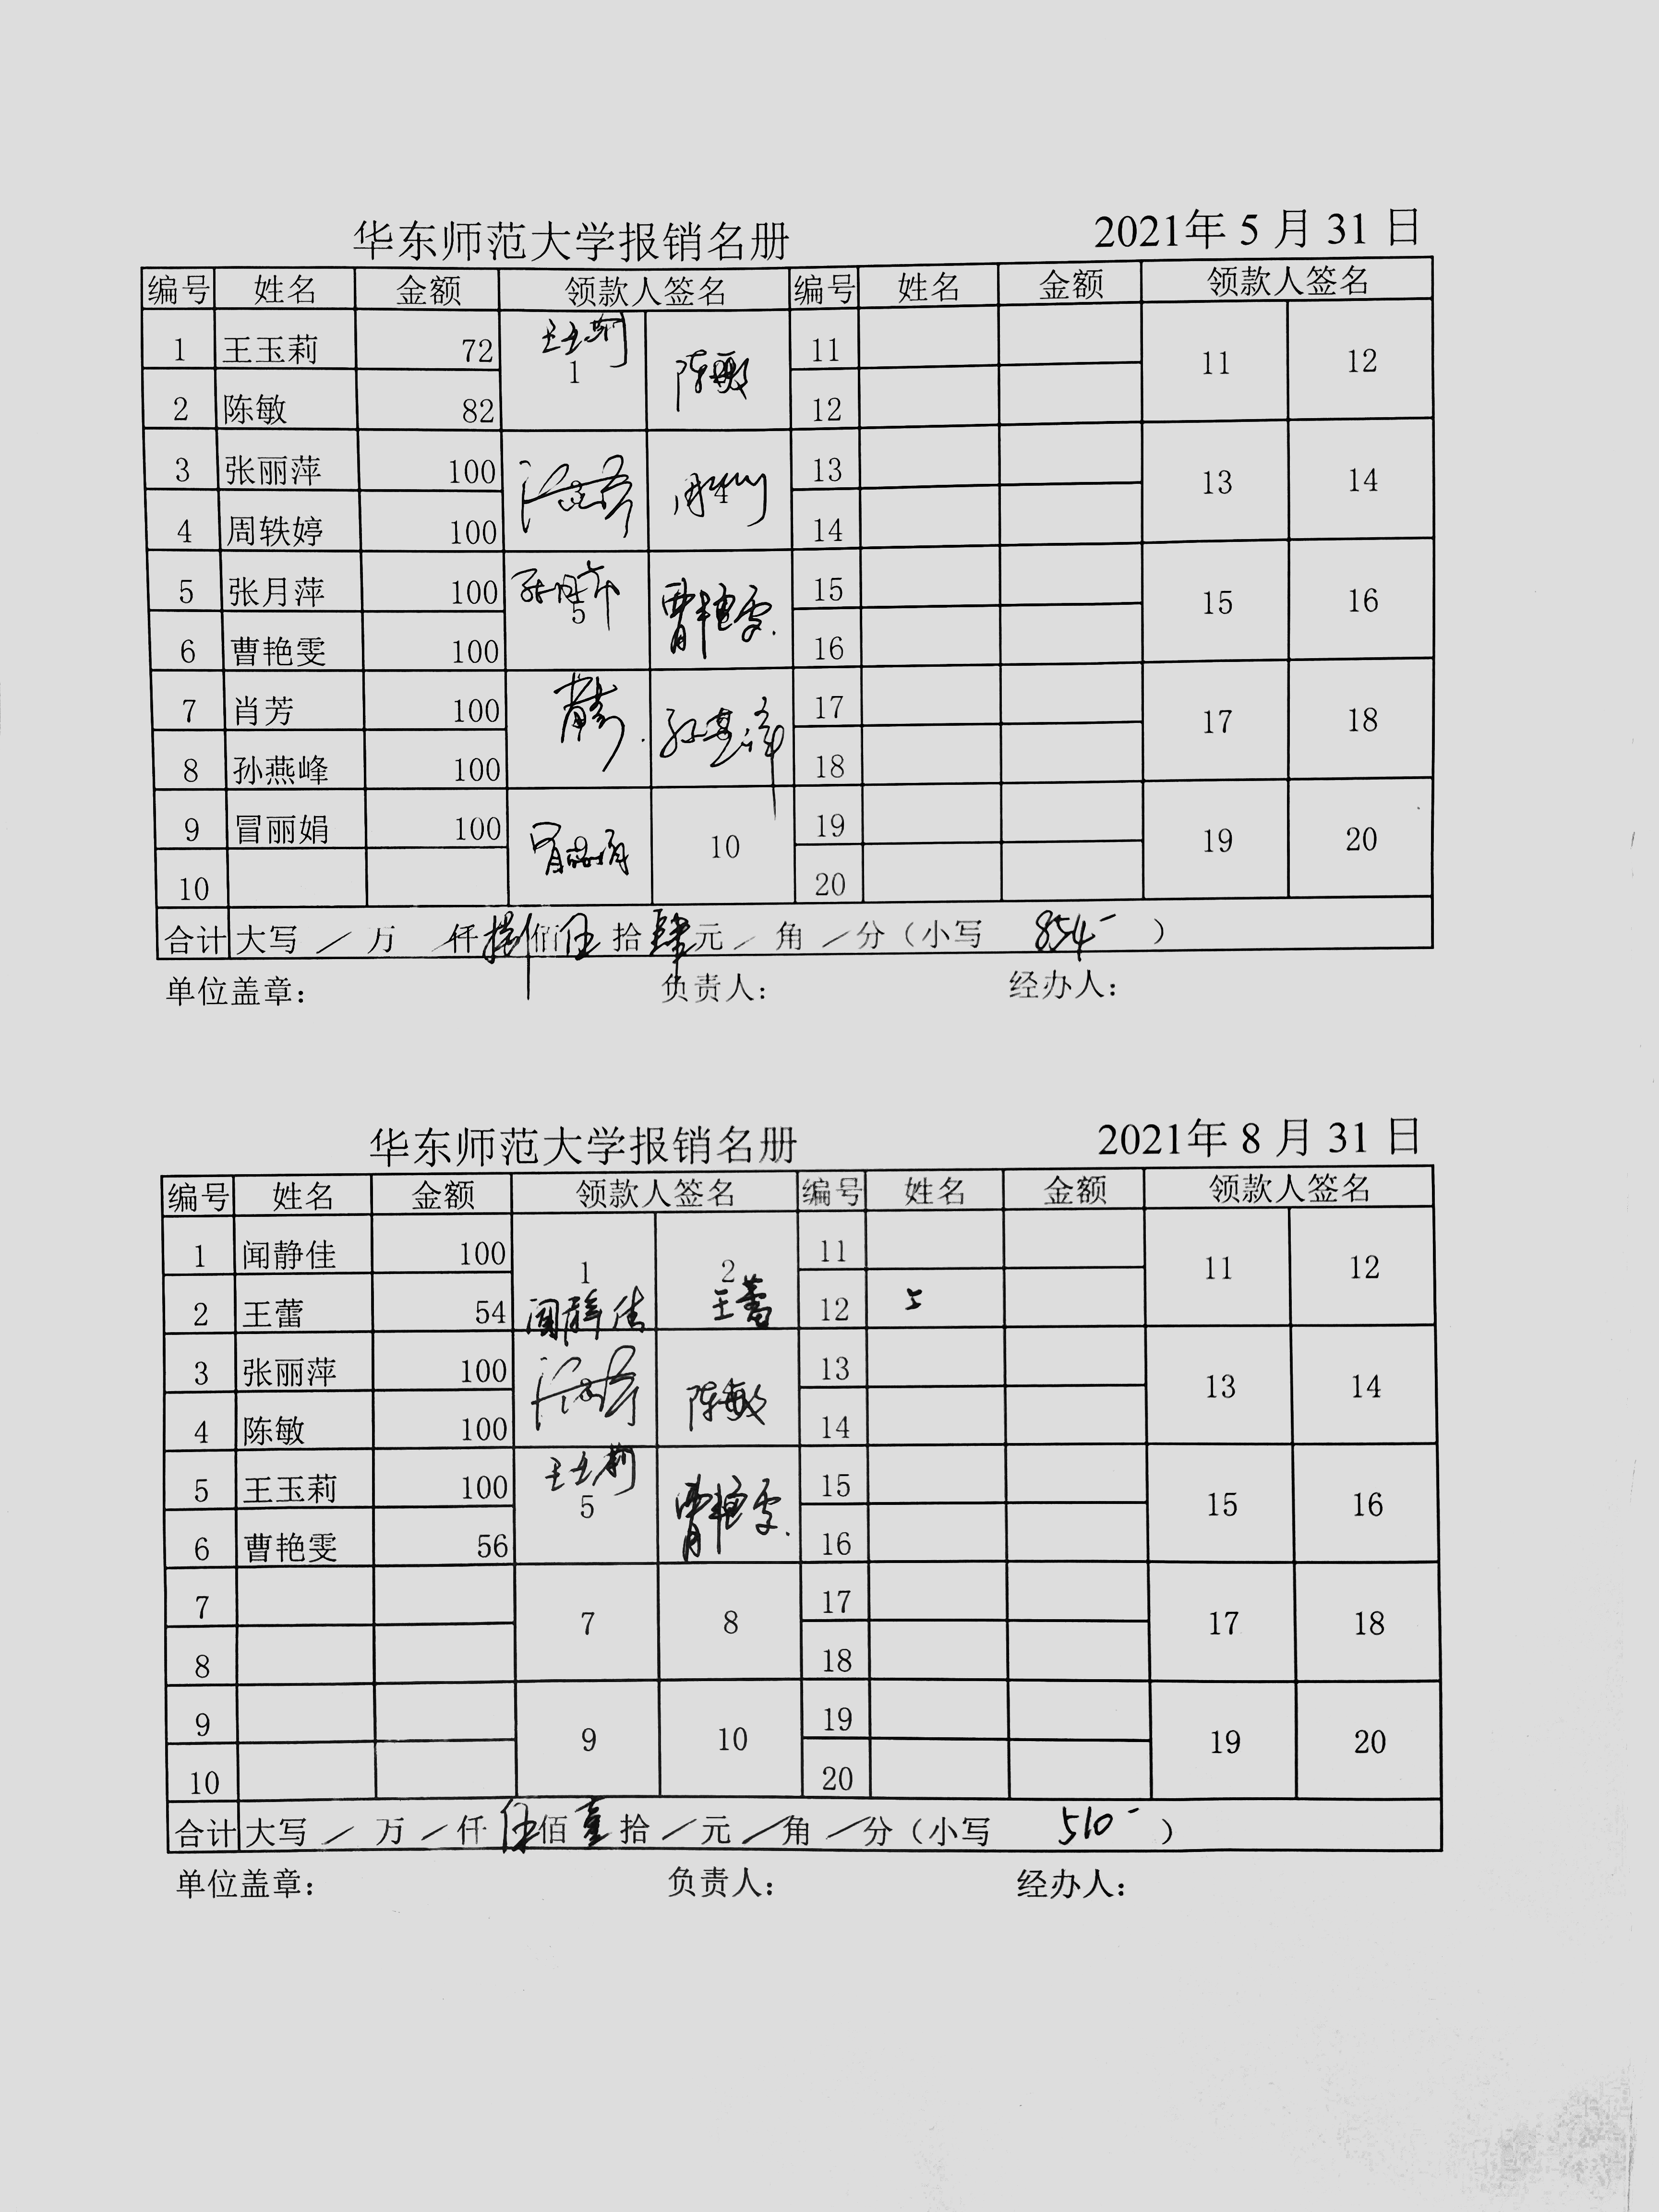 华东师范大学报销名册 2021年 5 月 31 日
编号 姓名 金额 领款人签名 编号 姓名 金额 领款人签名
1 王玉莉 72 王玉莉 1 陈敏 11 11 12
2 陈敏 82 12
3 张丽萍 100 3 4 13 13 14
4 周轶婷 100 14
5 张月萍 100 张月萍 5 曹艳雯 15 15 16
6 曹艳雯 100 16
7 肖芳 100 肖芳 孙燕峰 17 17 18
8 孙燕峰 100 18
9 冒丽娟 100 冒丽娟 9 10 19 19 20
10 20
合计 大写 / 万 / 仟 捌 佰 伍 拾 肆 元 / 角 / 分（小写 854- ）
单位盖章： 负责人： 经办人：
华东师范大学报销名册 2021年 8 月 31 日
编号 姓名 金额 领款人签名 编号 姓名 金额 领款人签名
1 闻静佳 100 1 闻静佳 2 王蕾 11 11 12
2 王蕾 54 12
3 张丽萍 100 3 陈敏 13 13 14
4 陈敏 100 14
5 王玉莉 100 王玉莉 5 曹艳雯 15 15 16
6 曹艳雯 56 16
7 7 8 17 17 18
8 18
9 9 10 19 19 20
10 20
合计 大写 / 万 / 仟 伍 佰 壹 拾 / 元 / 角 / 分（小写 510- ）
单位盖章： 负责人： 经办人：